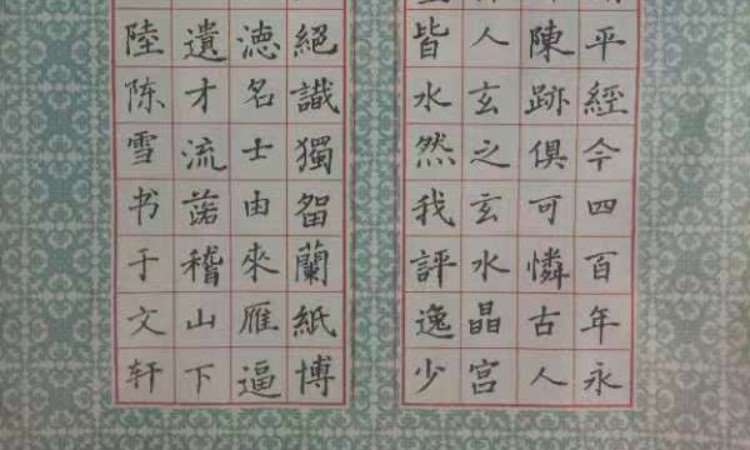 平經今四百年永
陳跡俱可憐古人
人玄之玄水晶宮
皆水然我評逸少
絕識獨留蘭紙博
徳名士由來雁逼
遺才流落稽山下
陸陈雪书于文轩